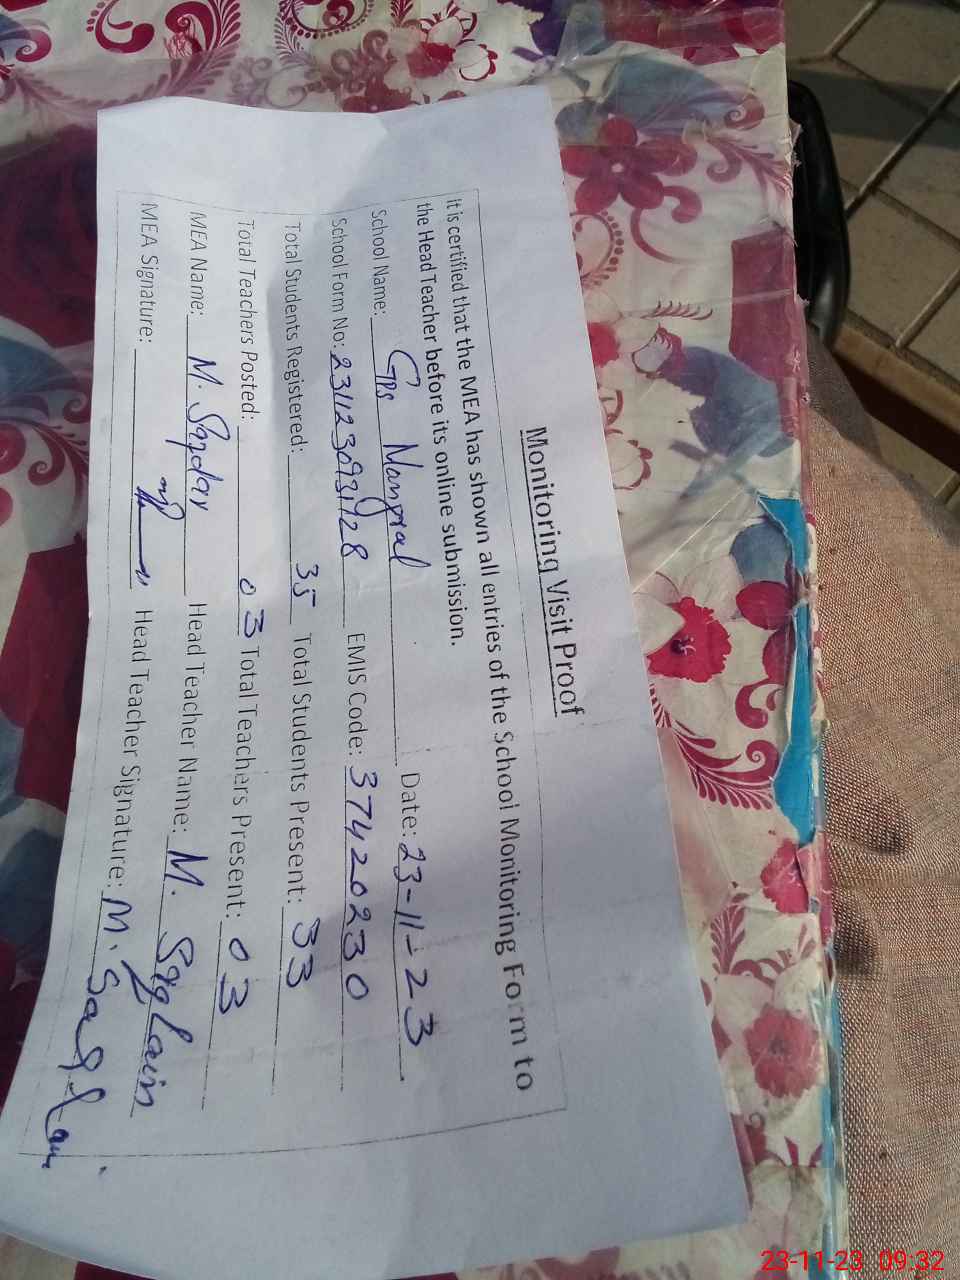 Monitoring Visit Proof
It is certified that the MEA has shown all entries of the School Monitoring Form to
the Head Teacher before its online submission.
School Name: GPS Date: 23-11-23
School Form No: EMIS Code: 37420230
Total Students Registered: 35 Total Students Present: 33
Total Teachers Posted: 03 Total Teachers Present: 03
MEA Name: M. Safdar Head Teacher Name: M. Saqlain
MEA Signature: Head Teacher Signature: M. Saqlain
23-11-23 09:32